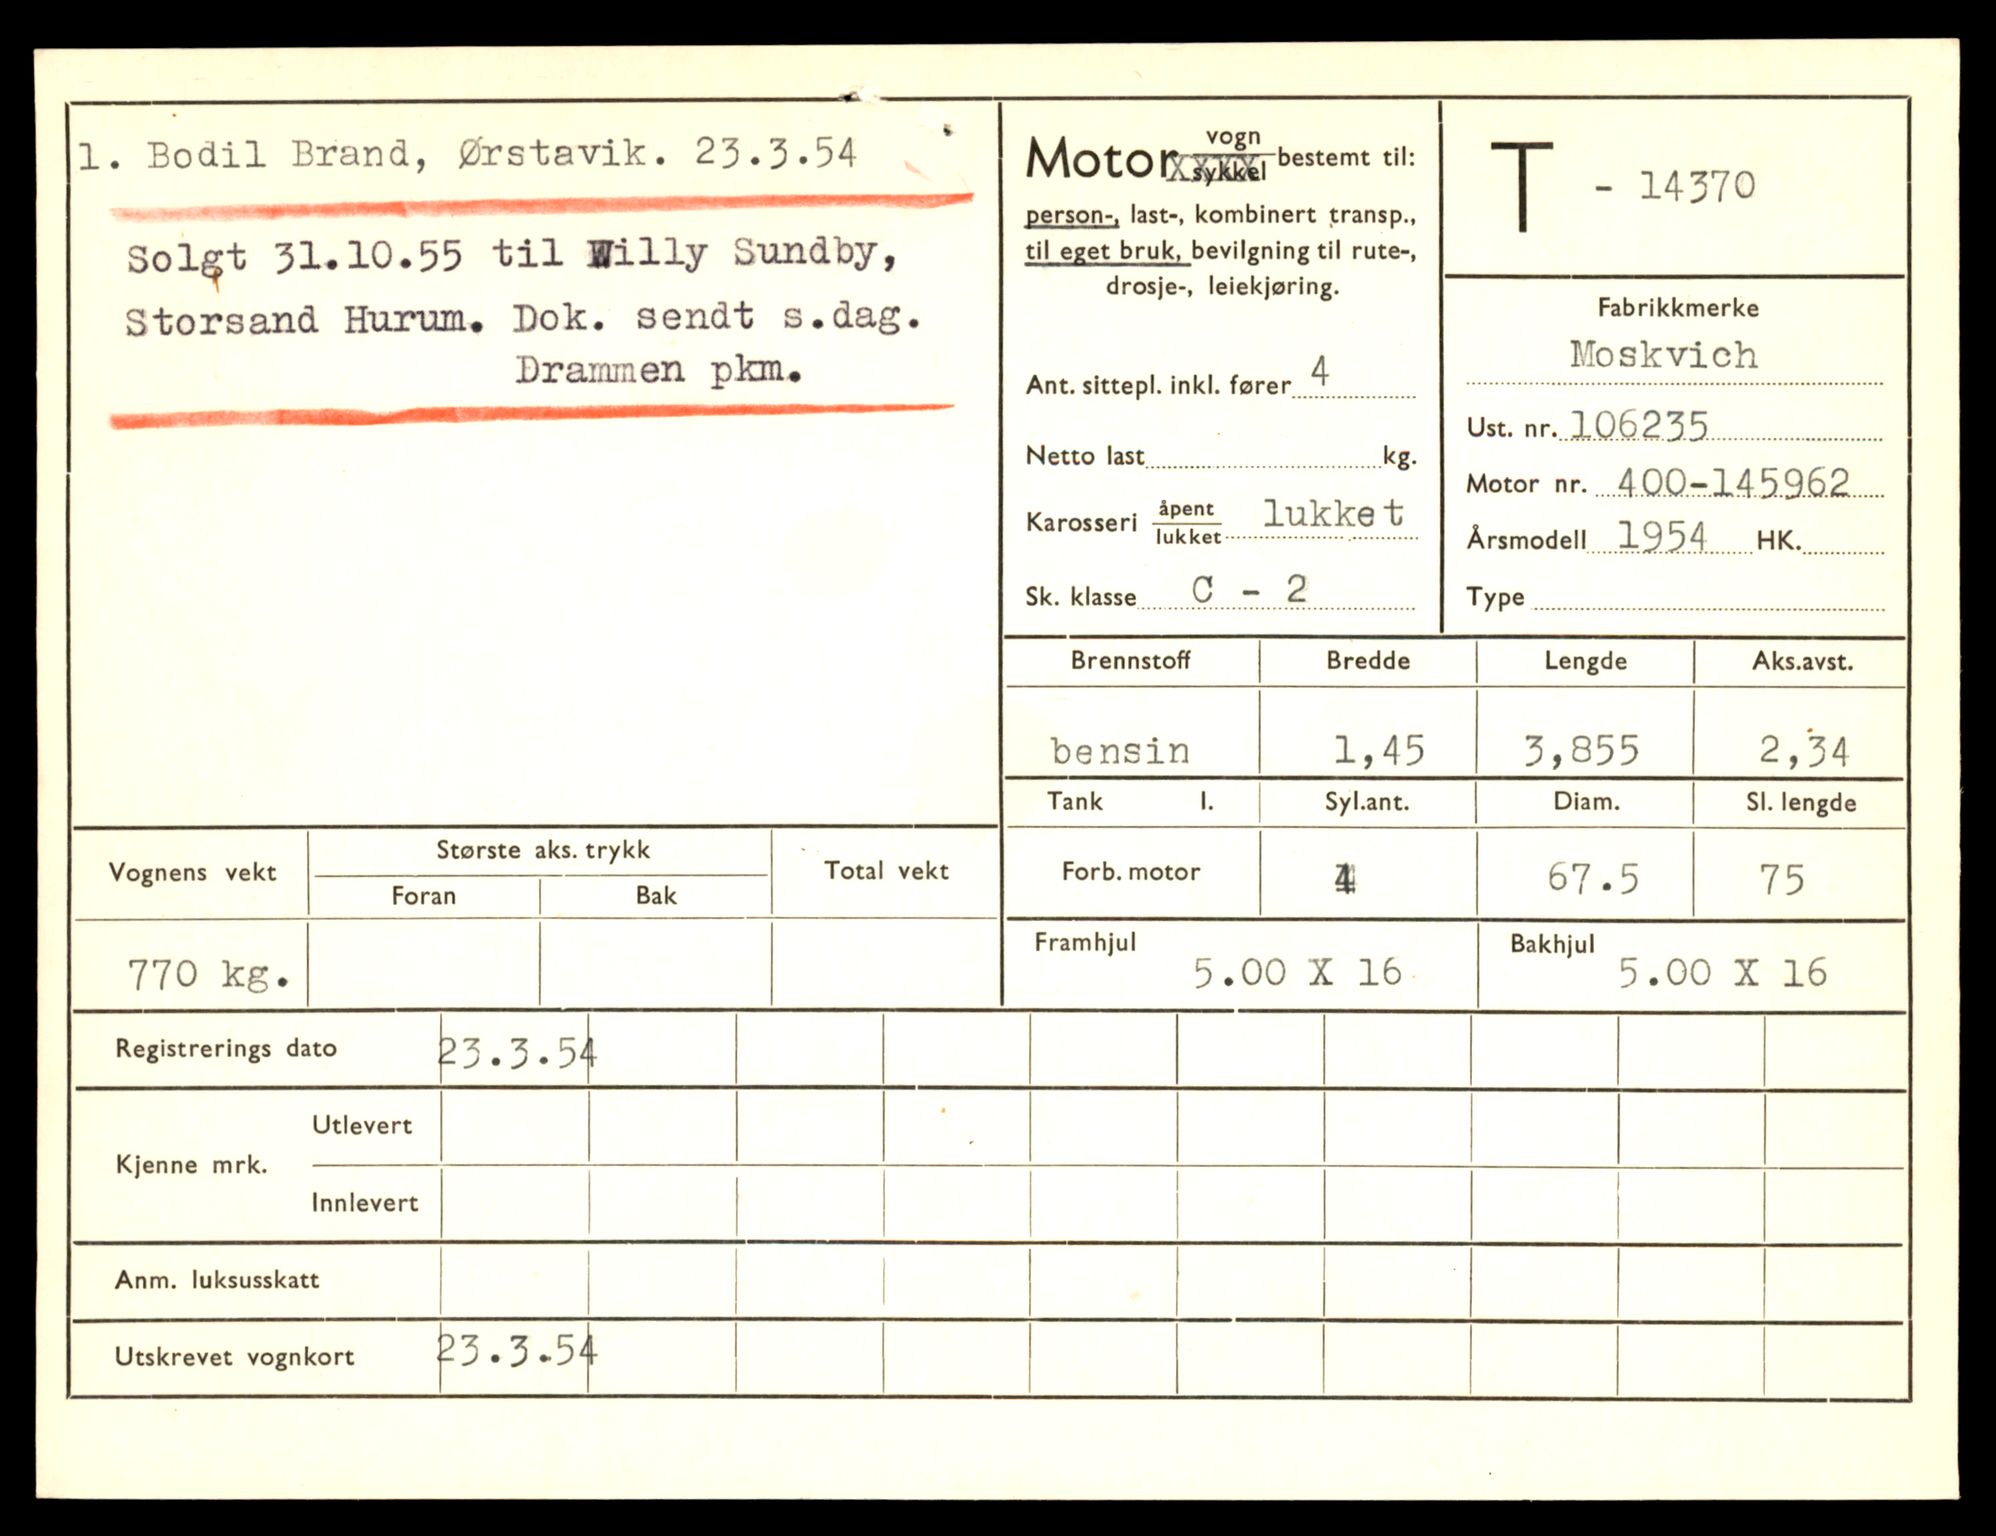 1. Bodil Brand, Ørstavik. 23.3.54
Solgt 31.10.55 til Willy Sundby,
Storsand Hurum. Dok. sendt s.dag.
Drammen pkm.
Motor vogn/sykkel bestemt til:
person-, last-, kombinert transp.,
til eget bruk, bevilgning til rute-,
drosje-, leiekjøring.
Ant. sittepl. inkl. fører 4
Netto last kg.
Karosseri åpent/lukket lukket
Sk. klasse C - 2
T - 14370
Fabrikkmerke
Moskvich
Ust. nr. 106235
Motor nr. 400-145962
Årsmodell 1954 HK.
Type
Brennstoff Bredde Lengde Aks.avst.
bensin 1,45 3,855 2,34
Tank l. Syl.ant. Diam. Sl. lengde
Forb. motor 4 67.5 75
Framhjul 5.00 X 16 Bakhjul 5.00 X 16
Vognens vekt Største aks. trykk Total vekt
Foran Bak
770 kg.
Registrerings dato 23.3.54
Kjenne mrk. Utlevert
Innlevert
Anm. luksusskatt
Utskrevet vognkort 23.3.54